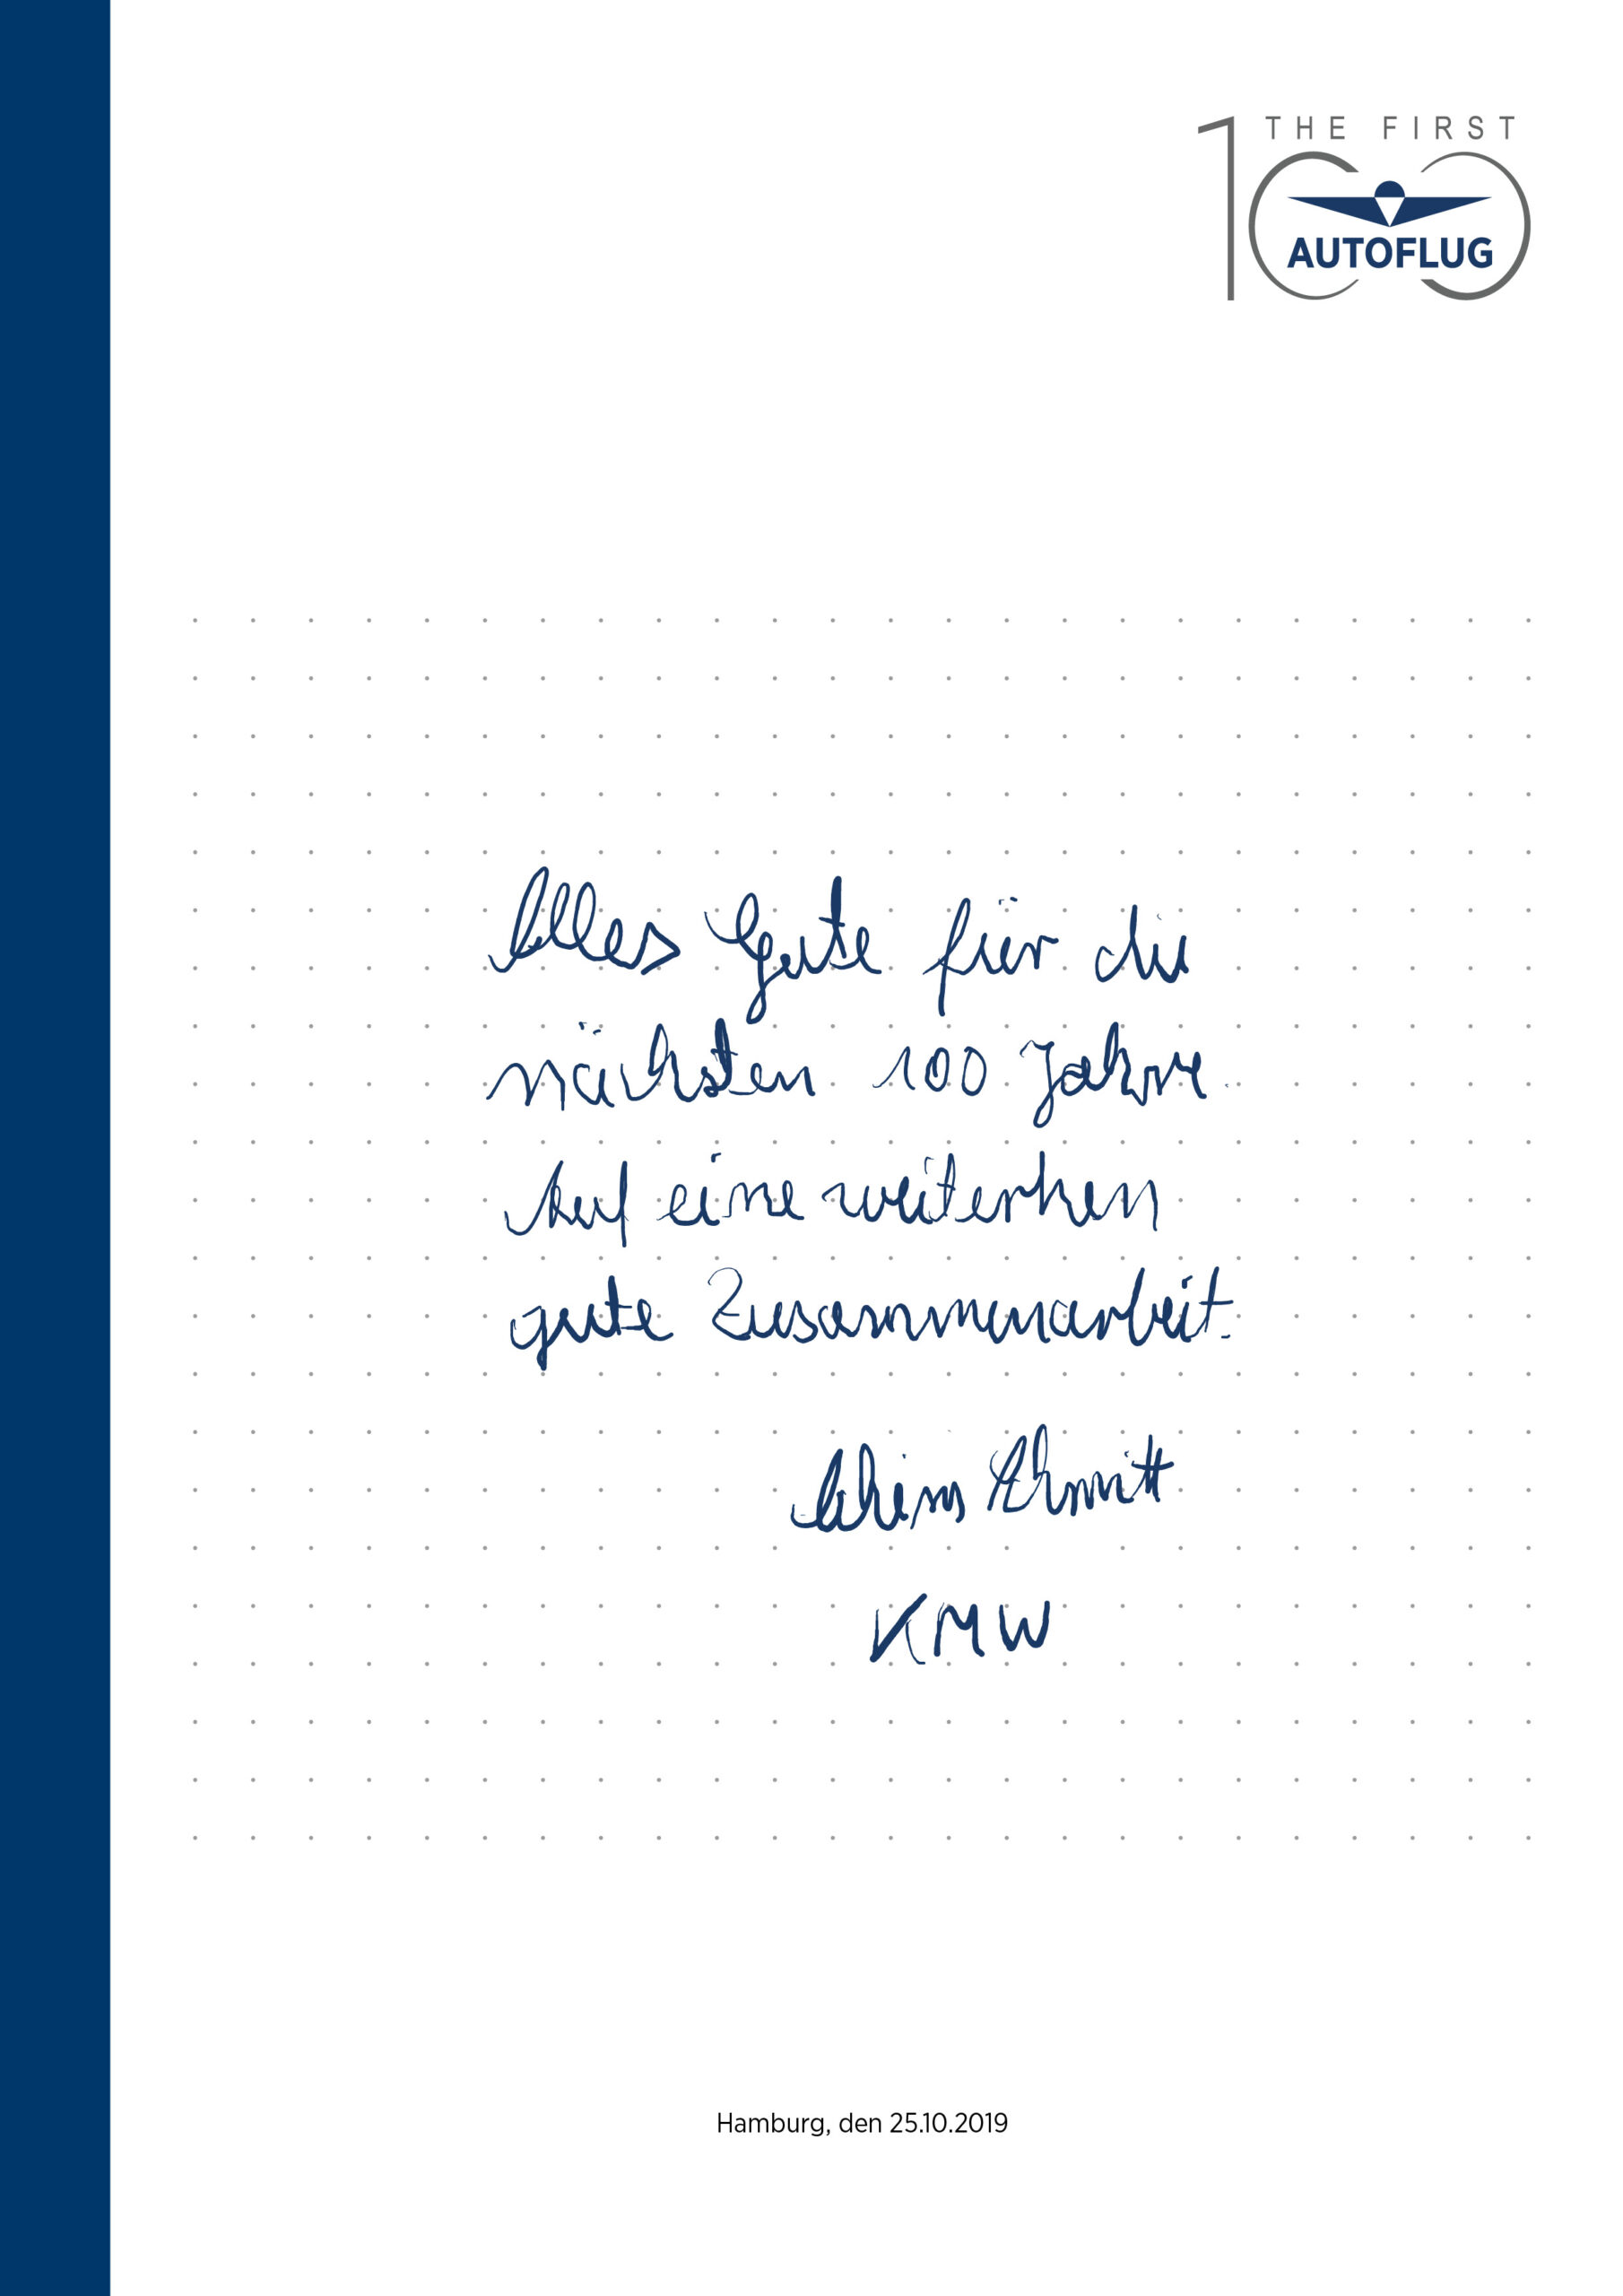 THE FIRST
100
AUTOFLUG
Alles Gute für die
nächsten 100 Jahre.
Auf eine weiterhin
gute Zusammenarbeit.
Achim Schmitt
KMW
Hamburg, den 25.10.2019